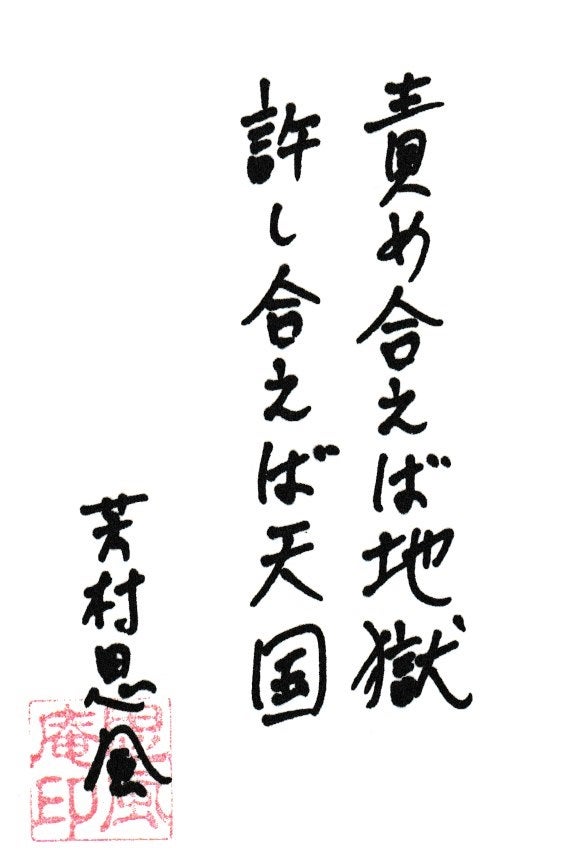 責め合えば地獄
許し合えば天国
芳村思風
思風
庵印